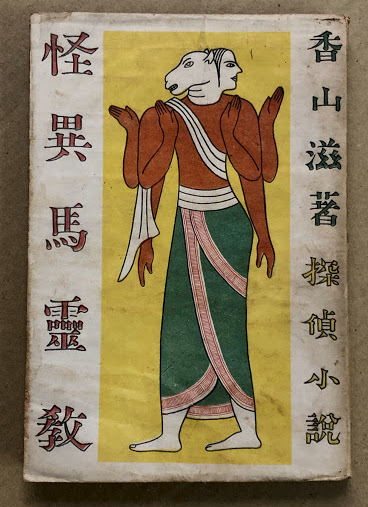 香山滋著
探偵小說
怪異馬靈教